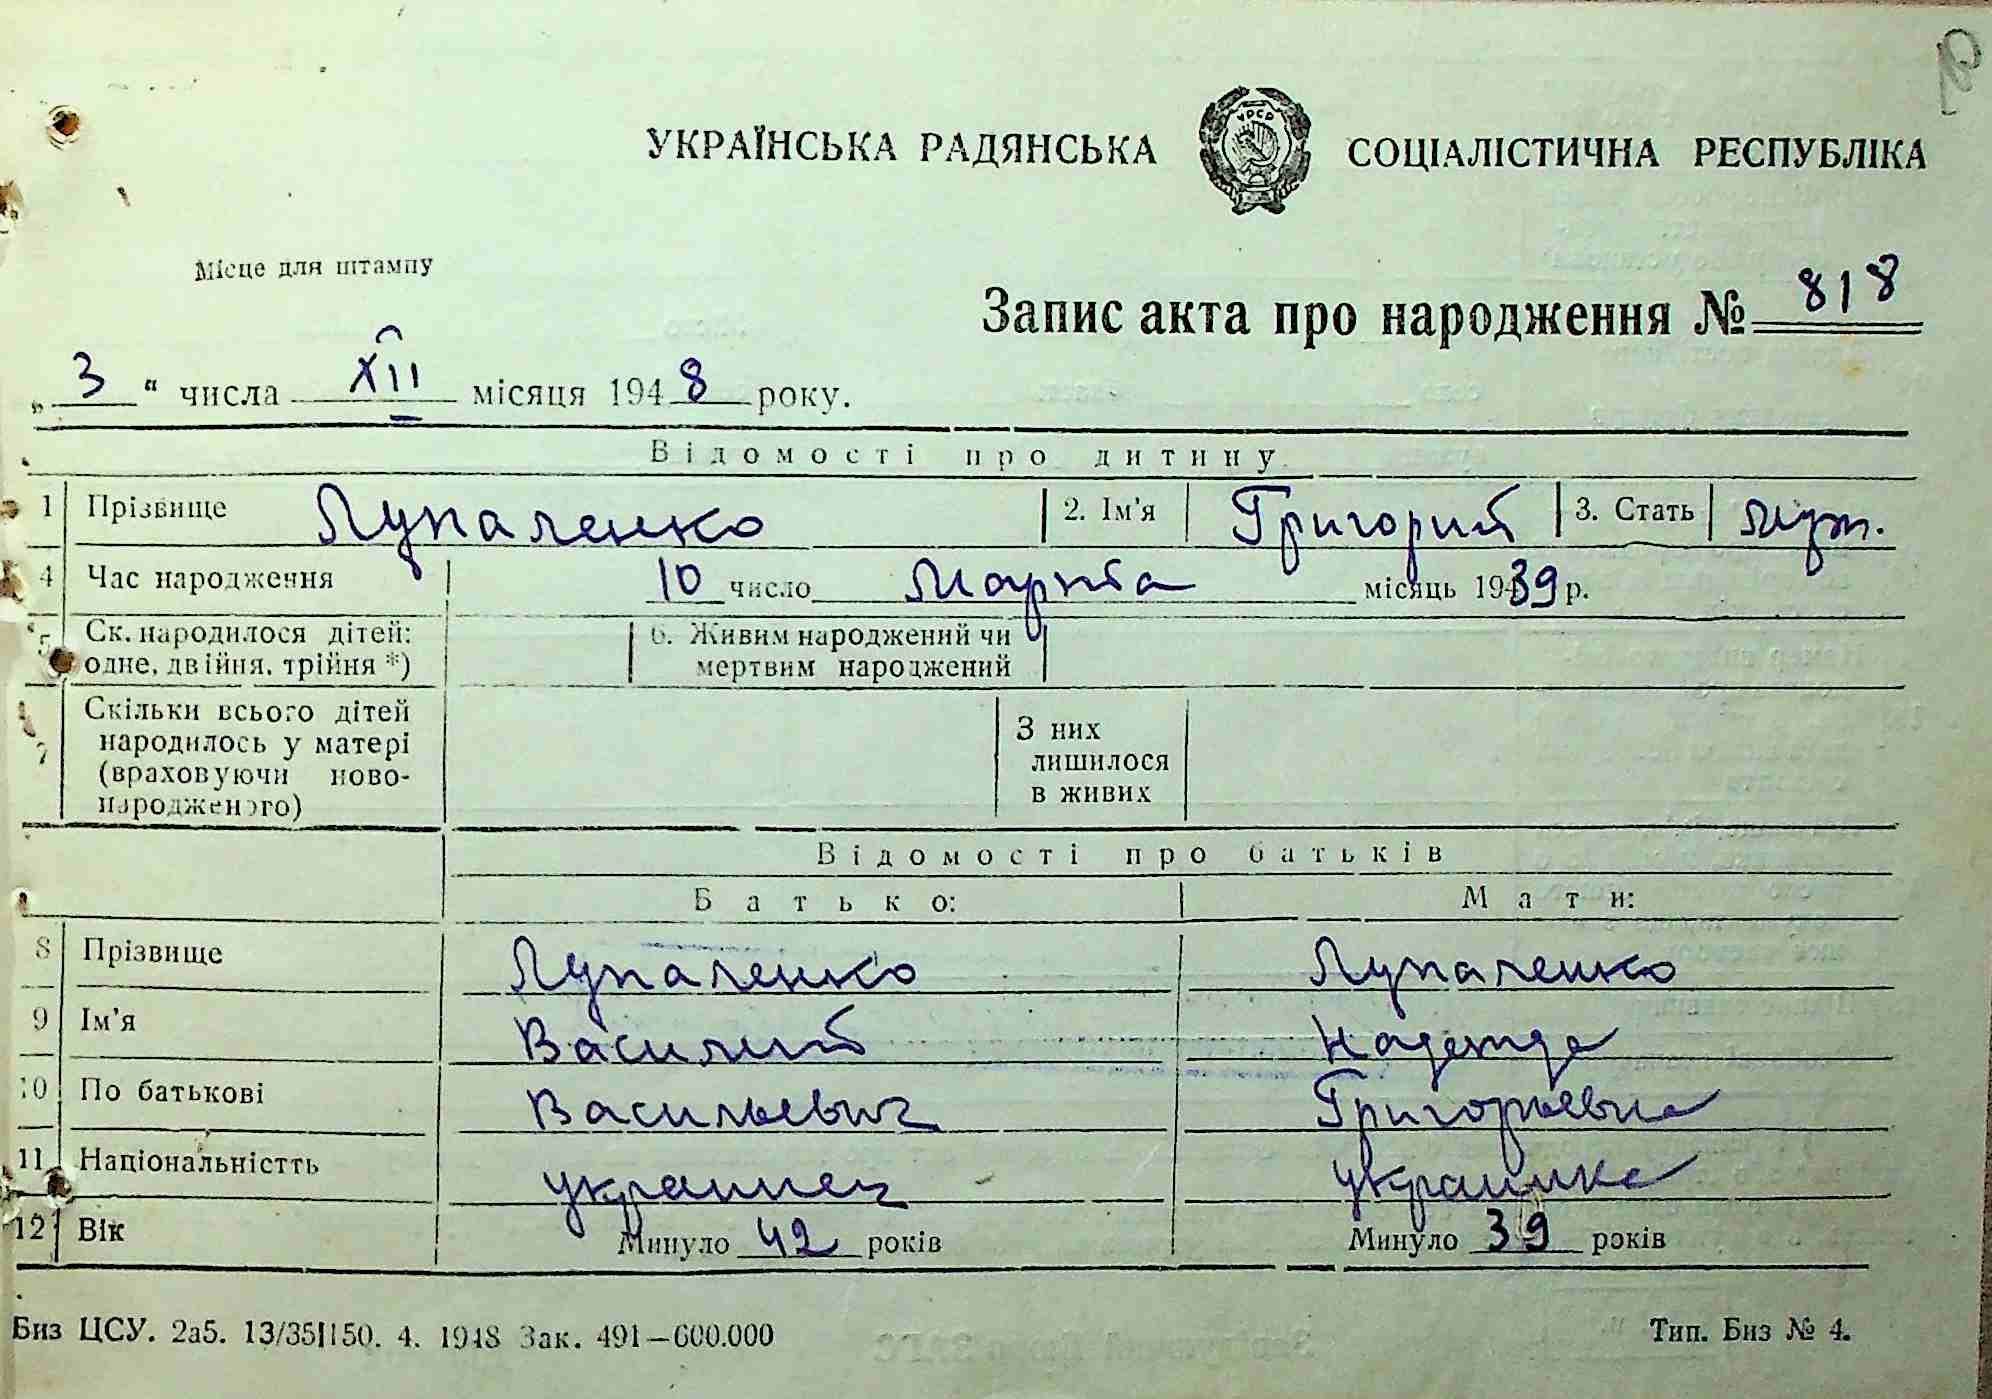 УКРАЇНСЬКА РАДЯНСЬКА УРСР СОЦІАЛІСТИЧНА РЕСПУБЛІКА
Місце для штампу
Запис акта про народження № 818
„ 3 “ числа XII місяця 1948 року.
Відомості про дитину
1 Прізвище Лупаленко 2. Ім'я Григорий 3. Стать муж.
4 Час народження 10 число Марта місяць 1939 р.
5 Ск. народилося дітей: 6. Живим народжений чи
одне, двійня, трійня *) мертвим народжений
7 Скільки всього дітей
народилось у матері З них
(враховуючи ново- лишилося
народженого) в живих
Відомості про батьків
Батько: Мати:
8 Прізвище Лупаленко Лупаленко
9 Ім'я Василий Надежда
10 По батькові Васильевич Григорьевна
11 Національністть украинец украинка
12 Вік Минуло 42 років Минуло 39 років
Биз ЦСУ. 2а5. 13/35І150. 4. 1948 Зак. 491—600.000 Тип. Биз № 4.